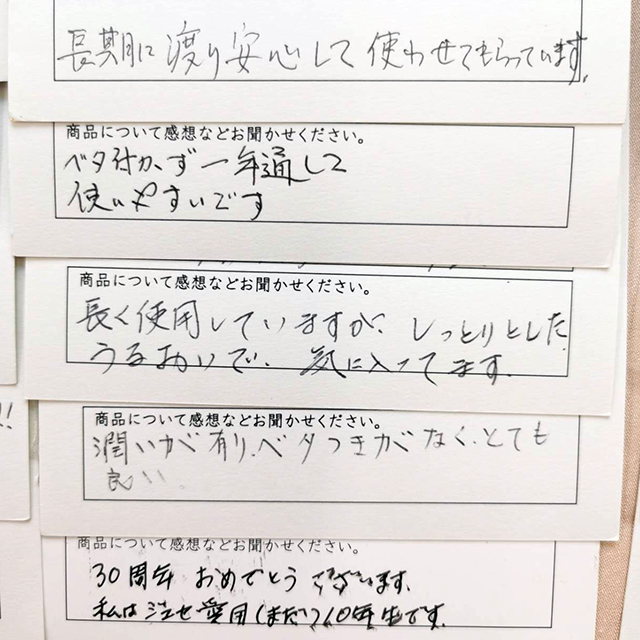 長期に渡り安心して使わせてもらっています。
商品について感想などお聞かせください。
ベタ付かず一年通して
使いやすいです
商品について感想などお聞かせください。
長く使用していますが、しっとりとした
うるおいで、気に入ってます。
!!
商品について感想などお聞かせください。
潤いが有り、ベタつきがなく、とても
良い。
商品について感想などお聞かせください。
30周年 おめでとうございます。
私は 愛用(まだ)10年生です。